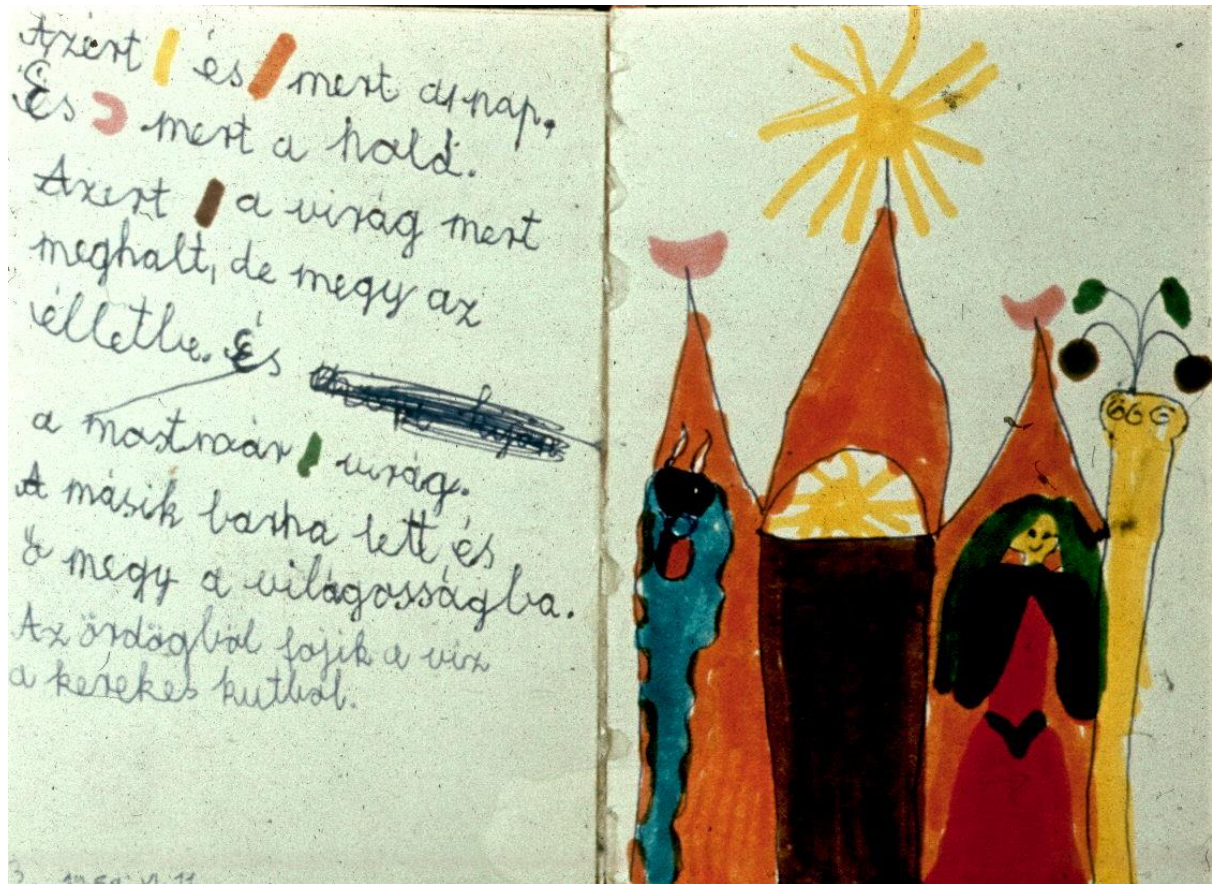 Azért és mert a nap,
És mert a hold.
Azért a virág mert
meghalt, de megy az
élletbe. És
a mostraár virág.
A másik barna lett és
ő megy a világosságba.
Az ördögból fojik a viz
a kerekes kutból.